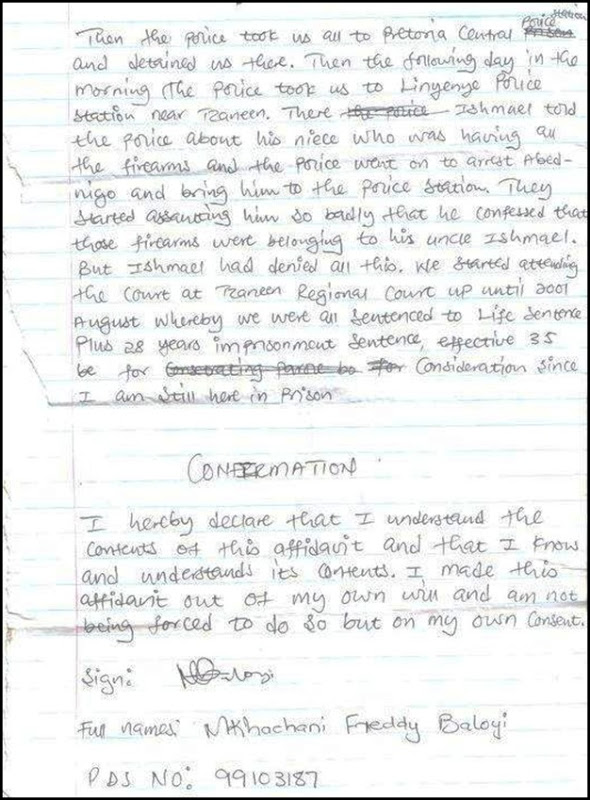 Then the police took us all to Pretoria Central Police Station
and detained us there. Then the following day in the
morning the Police took us to Linyenye Police
Station near Tzaneen. There the police Ishmael told
the police about his niece who was having all
the firearms and the police went on to arrest Abed-
nigo and bring him to the Police Station. They
started assauting him so badly that he confessed that
those firearms were belonging to his uncle Ishmael.
But Ishmael had denied all this. We started attending
the Court at Tzaneen Regional Court up until 2001
August whereby we were all Sentenced to Life Sentence
Plus 28 years imprisonment Sentence, effective 35
be for for Consideration since
I am still here in Prison
CONFIRMATION
I hereby declare that I understand the
Contents of this affidavit and that I know
and understands its Contents. I made this
affidavit out of my own will and am not
being forced to do so but on my own Consent.
Sign:
Full names: Mkhachani Freddy Baloyi
PDS NO: 99103187